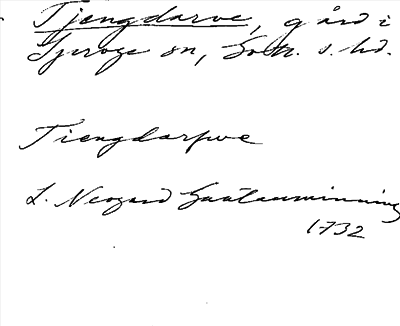 Tjengdarve, gård i
Sproge sn, Gotl. s. hd.
Tiengdarfwe
L. Neogard Gautauminning
1732